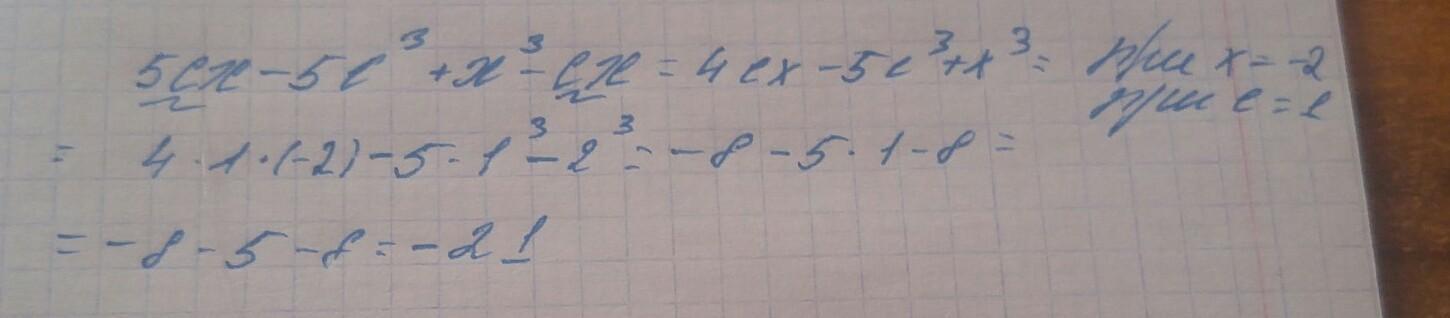 5cx - 5c³ + x³ - cx = 4cx - 5c³ + x³ = при x = -2
при c = 1
= 4 · 1 · (-2) - 5 · 1³ - 2³ = -8 - 5 · 1 - 8 =
= -8 - 5 - 8 = -21